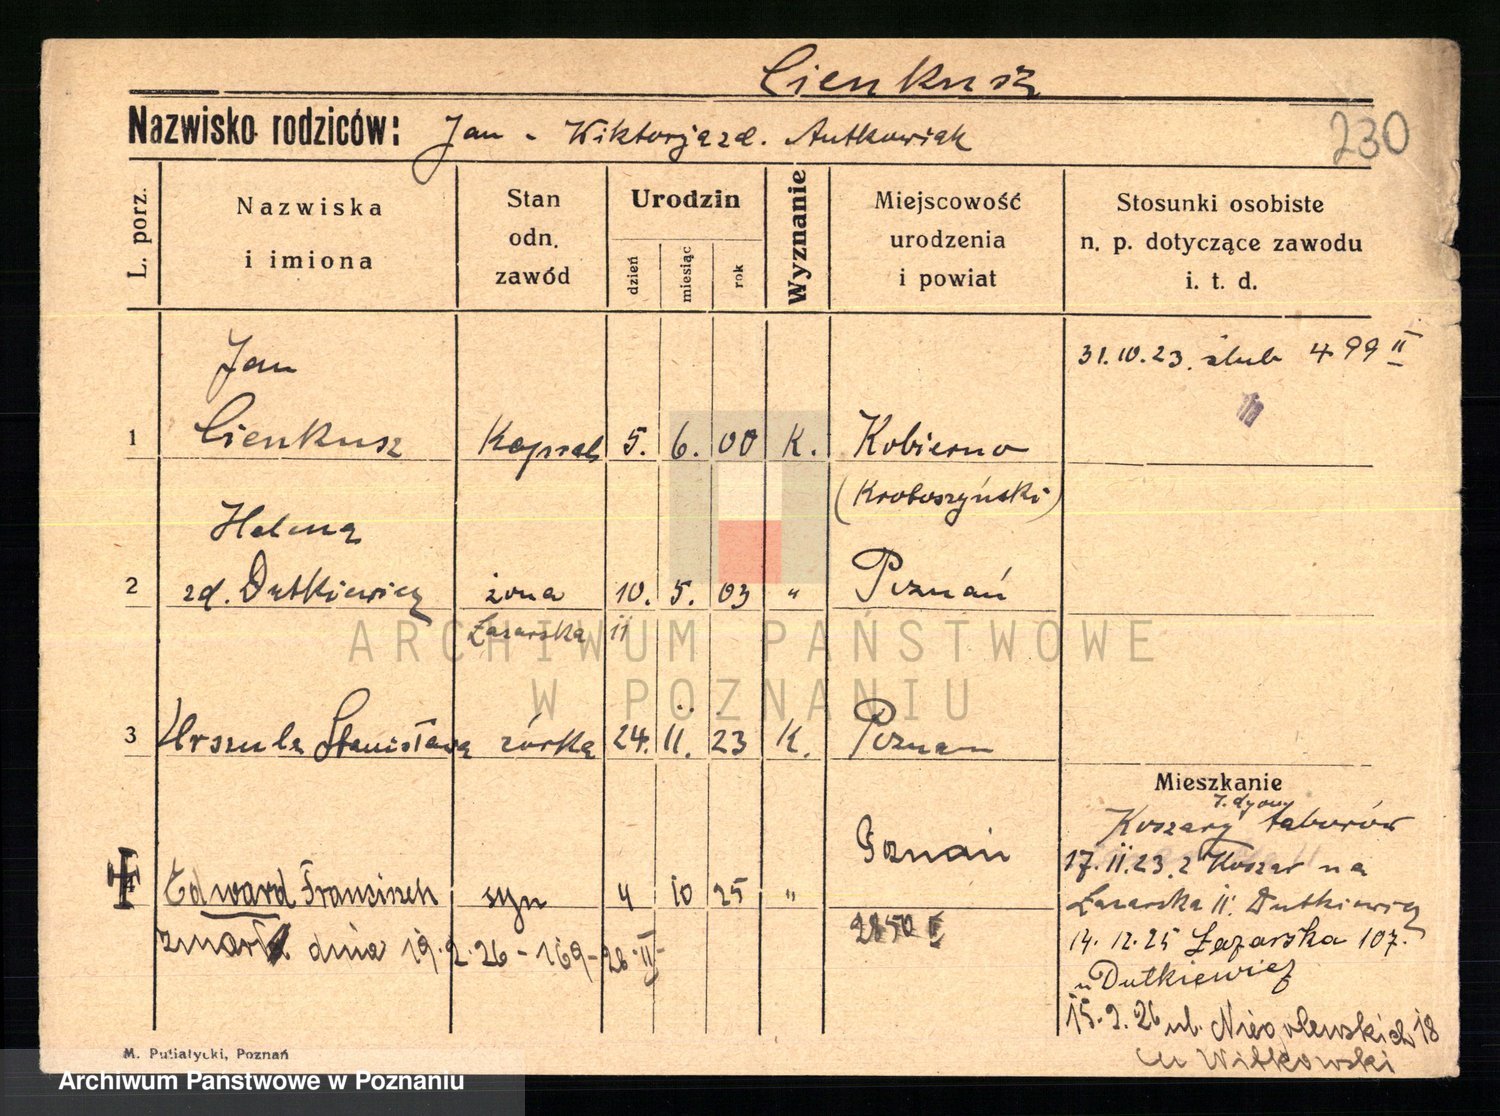 Cienkusz
Nazwisko rodziców: Jan - Wiktorja zd. Antkowiak
230
L. porz.
Nazwiska i imiona
Stan odn. zawód
Urodzin
dzień miesiąc rok
Wyznanie
Miejscowość urodzenia i powiat
Stosunki osobiste n. p. dotyczące zawodu i. t. d.
31.10.23. ślub 499 II
Jan
1 Cienkusz Kapral 5. 6. 00 K. Kobierno
(Krotoszyński)
Helena
2 zd. Dutkiewicz żona 10. 5. 03 " Poznań
Łazarska 11
ARCHIWUM PAŃSTWOWE
W POZNANIU
3 Urszula Stanisława córka 24. 11. 23 K. Poznań
Mieszkanie
7. dyonu
Koszary taborów
17.11.23. z Koszar na
Łazarska 11. Dutkiewicz
14.12.25 Łazarska 107.
u Dutkiewicz
15.2.26 ul. Niegolewskich 18
u Witkowski
4 Edward Franciszek syn 4 10 25 " Poznań
2850 II
zmarł dnia 19.2.26 - 169 - 26 II -
M. Putiatycki, Poznań
Archiwum Państwowe w Poznaniu